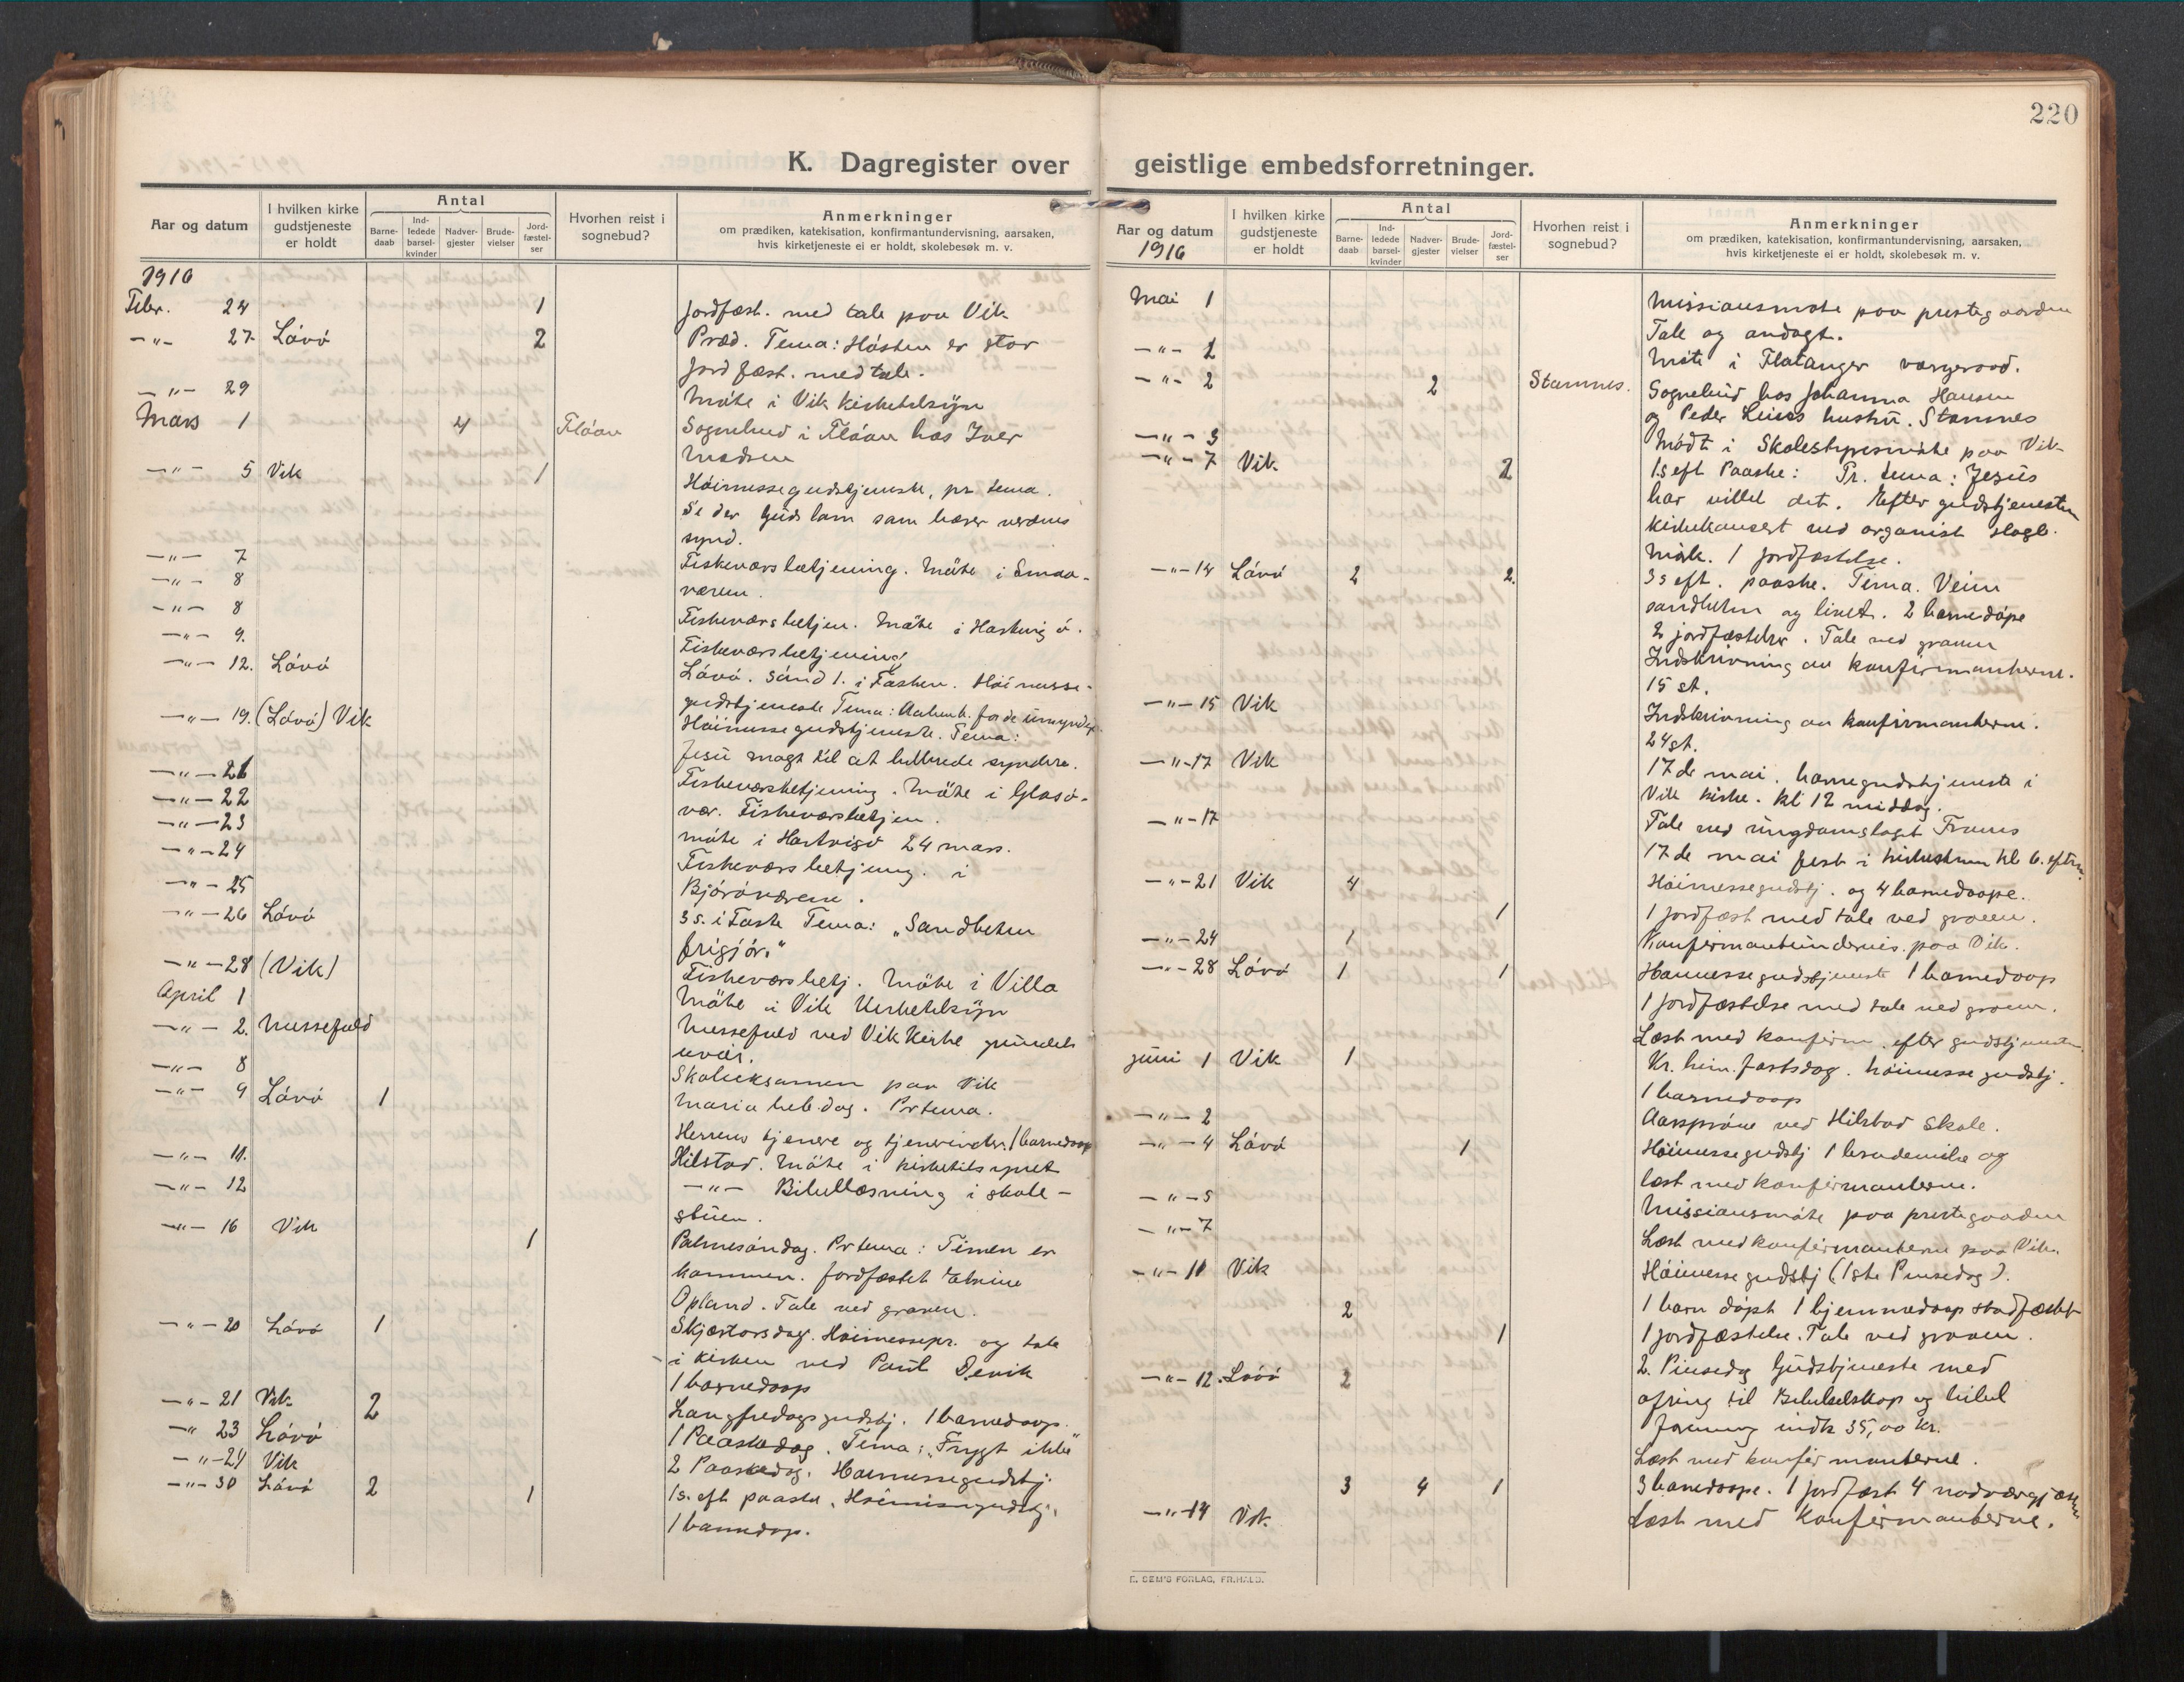 220
K. Dagregister over geistlige embedsforretninger.
Aar og datum
I hvilken kirke gudstjeneste er holdt
Antal
Barne-daab
Ind-ledede barsel-kvinder
Nadver-gjester
Brude-vielser
Jord-fæstel-ser
Hvorhen reist i sognebud?
Anmerkninger
om prædiken, katekisation, konfirmantundervisning, aarsaken,
hvis kirketjeneste ei er holdt, skolebesøk m. v.
1916
Febr. 24 1 Jordfæst. med tale paa Vik
-"- 27 Lövö 2 Præd. Tema: Hösten er stor
Jordfæst. med tale.
-"- 29 Möte i Vik kirketilsyn
Mars 1 4 Flöan Sognebud i Flöan hos Iver
Madsen
-"- 5 Vik 1 Höimessegudstjeneste, pr. tema.
Se der Guds lam som bærer verdens
synd.
-"- 7 Fiskeværsbetjening. Möte i Smaa-
-"- 8 værene.
-"- 8 Fiskeværsbetjen. Möte i Hartvigö.
-"- 9. Fiskeværsbetjening
-"- 12. Lövö Lövö. Sönd 1. i Fasten. Höimesse-
gudstjeneste Tema:
-"- 19. (Lövö) Vik Höimessegudstjeneste. Tema:
Jesu magt til at helbrede syndere.
-"- 21 Fiskeværsbetjening. Möte i Glasö-
-"- 22 vær. Fiskeværsbetjen.
-"- 23 möte i Hartvigö 24 mars.
-"- 24 Fiskeværsbetjening. i
-"- 25 Björöværene.
-"- 26 Lövö 3 s. i Faste Tema: "Sandheten
frigjör."
-"- 28 (Vik) Fiskeværsbetj. Möte i Villa
April 1 Möte i Vik Kirketilsyn
-"- 2. Messefald Messefald ved Vik Kirke grundet
uveir.
-"- 8 Skoleeksamen paa Vik
-"- 9 Lövö 1 Maria beb.dag. Pr tema.
Herrens tjenere og tjenerinder. 1 barnedaap
-"- 11. Hilstad. Möte i kirketilsynet
-"- 12 -"- Bibellæsning i skole-
stuen.
-"- 16 Vik 1 Palmesöndag. Pr tema: Timen er
kommen. Jordfæstet
Opland. Tale ved graven.
-"- 20 Lövö 1 Skjærtorsdag. Höimessepr. og tale
i kirken ved Paul Devik
1 barnedaap
-"- 21 Vik 2 Langfredagsgudstj. 1 barnedaap.
-"- 23 Lövö 1 Paaskedag. Tema: "Frygt ikke"
-"- 24 Vik 2 Paaskedag. Höimessegudstj.
-"- 30 Lövö 2 1 1 s. eft paaske. Höimessegudstj.
1 barnedap.
Aar og datum
1916
I hvilken kirke gudstjeneste er holdt
Antal
Barne-daab
Ind-ledede barsel-kvinder
Nadver-gjester
Brude-vielser
Jord-fæstel-ser
Hvorhen reist i sognebud?
Anmerkninger
om prædiken, katekisation, konfirmantundervisning, aarsaken,
hvis kirketjeneste ei er holdt, skolebesøk m. v.
Mai 1 Missionsmöte paa prestegaarden
Tale og andagt.
-"- 2 Möte i Flatanger vergeraad.
-"- 2 2 Stamnes. Sognebud hos Johanna Hansen
og Peder hustru. Stamnes
-"- 3 Mödt i Skolestyresmöte paa Vik
-"- 7 Vik 2 1 s eft Paaske: Pr. tema: Jesus
har villet det. Efter gudstjenesten
kirkekonsert ved organist
1 jordfæstelse.
-"- 14 Lövö 2 2. 3 s eft. paaske. Tema. Veien
sandheten og livet. 2 barnedöpe
2 jordfæstelser. Tale ved graven
Indskrivning av konfirmanterne.
15 st.
-"- 15 Vik Indskrivning av konfirmanterne.
24 st.
-"- 17 Vik 17de mai. gudstjeneste i
Vik kirke. kl 12 middag.
-"- 17 Tale ved ungdomslaget Frams
17de mai fest i kl 6. eftm.
-"- 21 Vik 4 Höimessegudstj. og 4 barnedaape.
1 1 jordfæst med tale ved graven.
-"- 24 1 Konfirmantundervis. paa Vik.
-"- 28 Lövö 1 1 Höimessegudstjeneste 1 barnedaap
1 jordfæstelse med tale ved graven.
Læst med konfirm. efter gudstjenesten.
Juni 1 Vik 1 Kr. him.fartsdag. höimessegudstj.
1 barnedaap
-"- 2 Aarspröve ved Hilstad skole.
-"- 4 Lövö 1 Höimessegudstj 1 brudevielse og
læst med konfirmanterne.
-"- 5 Missionsmöte paa prestegaarden
-"- 7 Læst med konfirmanterne paa Vik.
-"- 11 Vik Höimessegudstj (1ste Pinsedag).
2 1 barn döpt 1 hjemmedaap stadfæstet
1 1 jordfæstelse. Tale ved graven.
-"- 12. Lövö 2 2. Pinsedag Gudstjeneste med
ofring til Bibelselskap og bibel
indk 35,00 Kr.
Læst med konfirmanterne.
3 4 1 3 barnedaape. 1 jordfæst 4 nadvergjester
-"- 14 Vik. Læst med Konfirmanterne.
E. SEM'S FORLAG, FR.HALD.